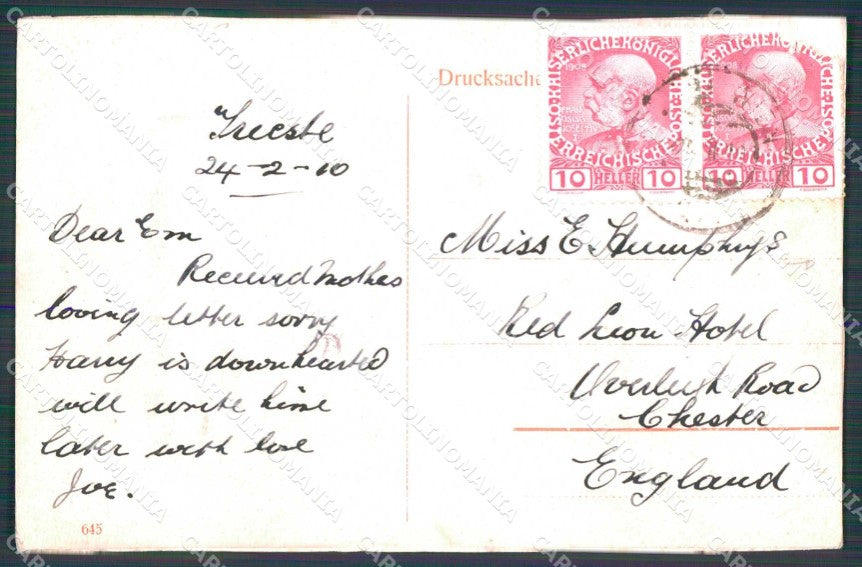 Drucksache
Trieste
24-2-10
Dear Em
Received Mothes
loving letter sorry
Harry is downhearted
will write hime
later with love
Joe.
645
KAISERLICHE KÖNIGLICHE
ÖSTERREICHISCHE POST
1908
10 HELLER 10
10 HELLER 10
Miss E. Humphrys
Red Lion Hotel
Overleigh Road
Chester
England
CARTOLINOMANIA